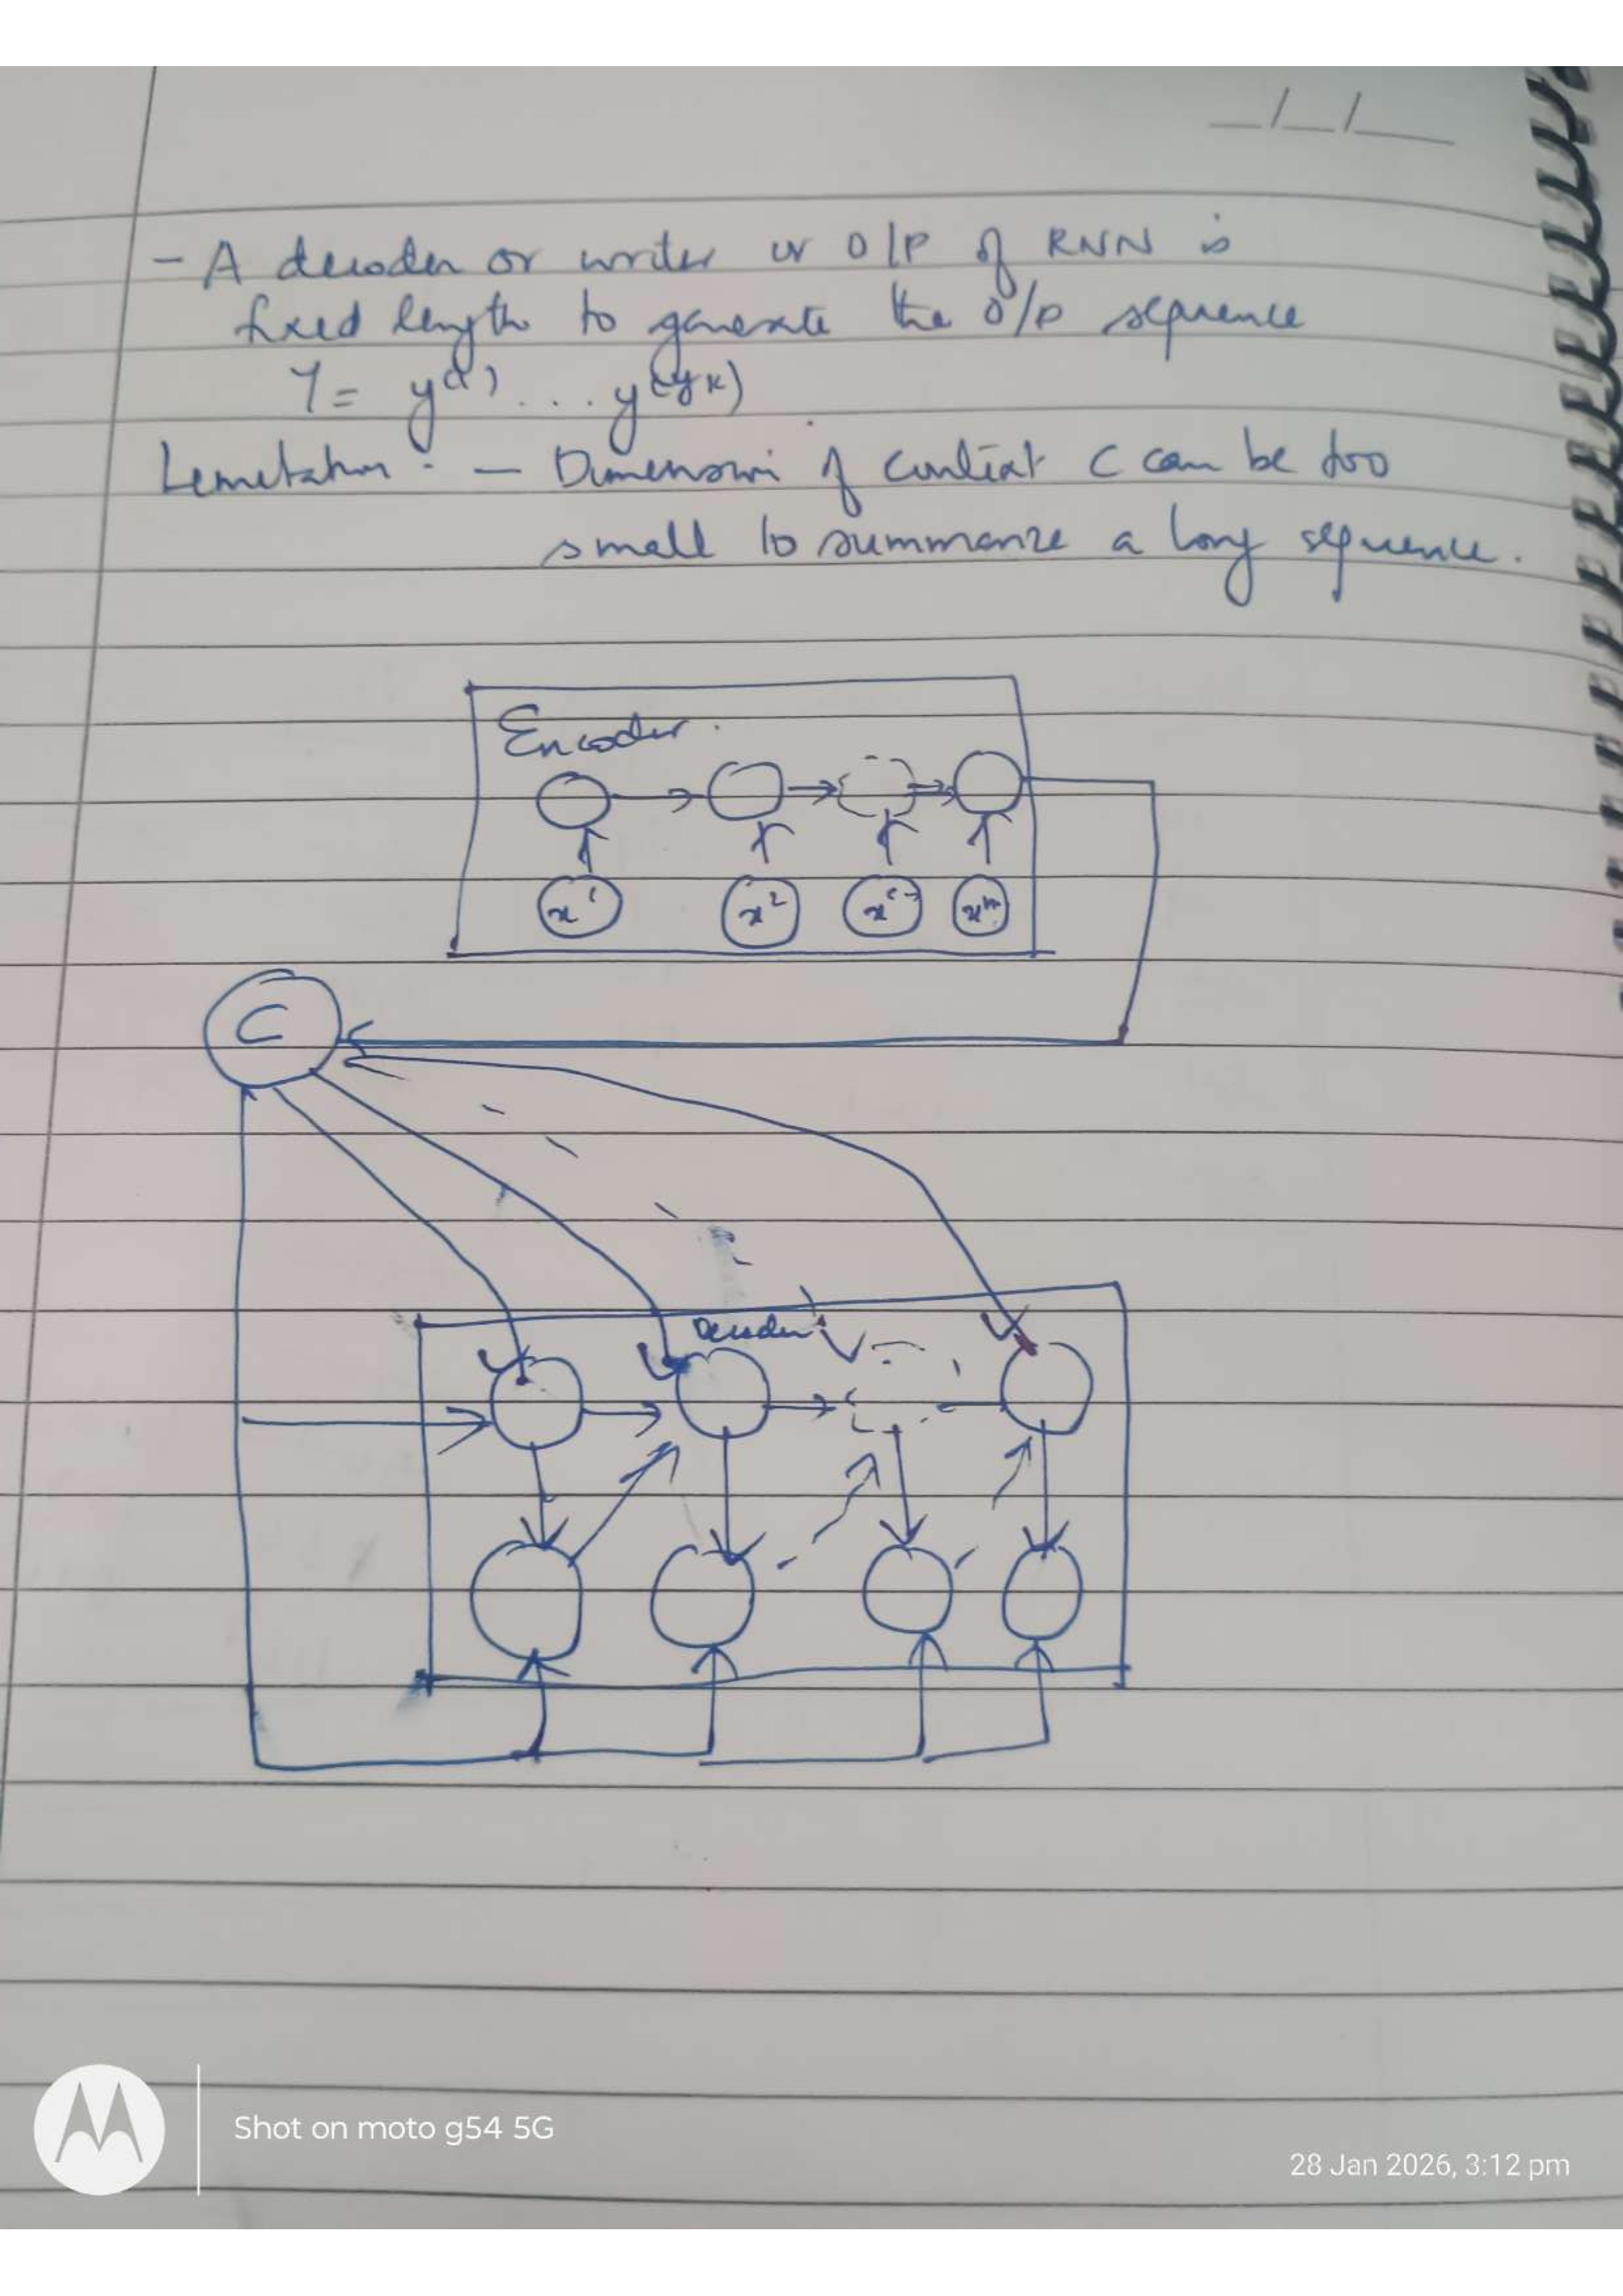 _/_/_
- A decoder or writer or O/P of RNN is
fixed length to generate the O/P sequence
Y = y(1) ... y(
Lemitation : - Dimension of context C can be too
small to summarize a long sequence.
Encoder.
x1 x2 x(-) xn
C
Decoder
Shot on moto g54 5G
28 Jan 2026, 3:12 pm